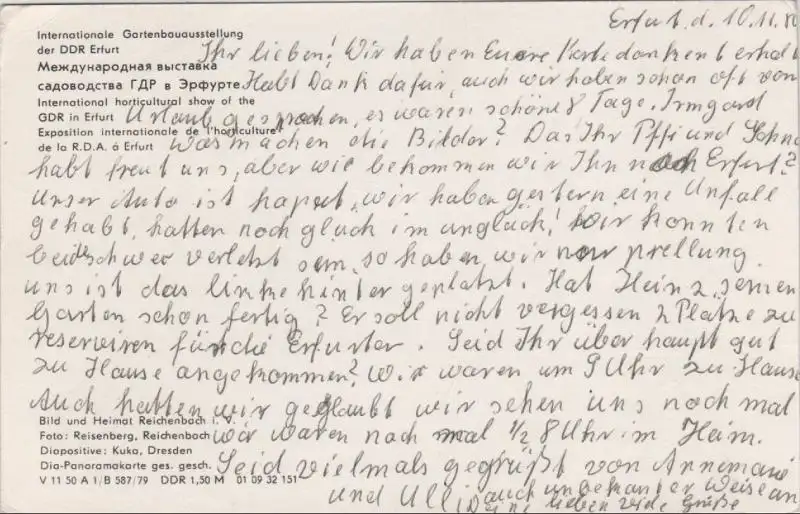 Erfurt. d. 10.11.80
Internationale Gartenbauausstellung
der DDR Erfurt
Международная выставка
садоводства ГДР в Эрфурте
International horticultural show of the
GDR in Erfurt
Exposition internationale de l'horticulture
de la R.D.A. á Erfurt
Ihr lieben! Wir haben Euere Karte dankent erhalt
Habt Dank dafür, auch wir haben schon oft von
Urlaub gesprochen, es waren schöne 8 Tage. Irmgard
Was machen die Bilder? Das Ihr und
habt freut uns, aber wie bekommen wir Ihn nach Erfurt?
Unser Auto ist kaputt, wir haben gestern eine Unfall
gehabt, hatten noch glück im unglück! Wir konnten
beide schwer verletzt sein, so haben wir nur prellung
uns ist das linke hinter geplatzt. Hat Heinz seinen
Garten schon fertig? Er soll nicht vergessen 2 Plätze zu
reserviren für die Erfurter. Seid Ihr über haupt gut
zu Hause angekommen? Wir waren um 9 Uhr zu Hause
Auch hatten wir geglaubt wir sehen uns noch mal
wir waren noch mal 1/2 8 Uhr im Heim.
Seid vielmals gegrüßt von Annemarie
und Ulli auch unbekanter Weise an
Deine lieben viele Grüße
Bild und Heimat Reichenbach i. V.
Foto: Reisenberg, Reichenbach
Diapositive: Kuka, Dresden
Dia-Panoramakarte ges. gesch.
V 11 50 A 1/B 587/79 DDR 1,50 M 01 09 32 151